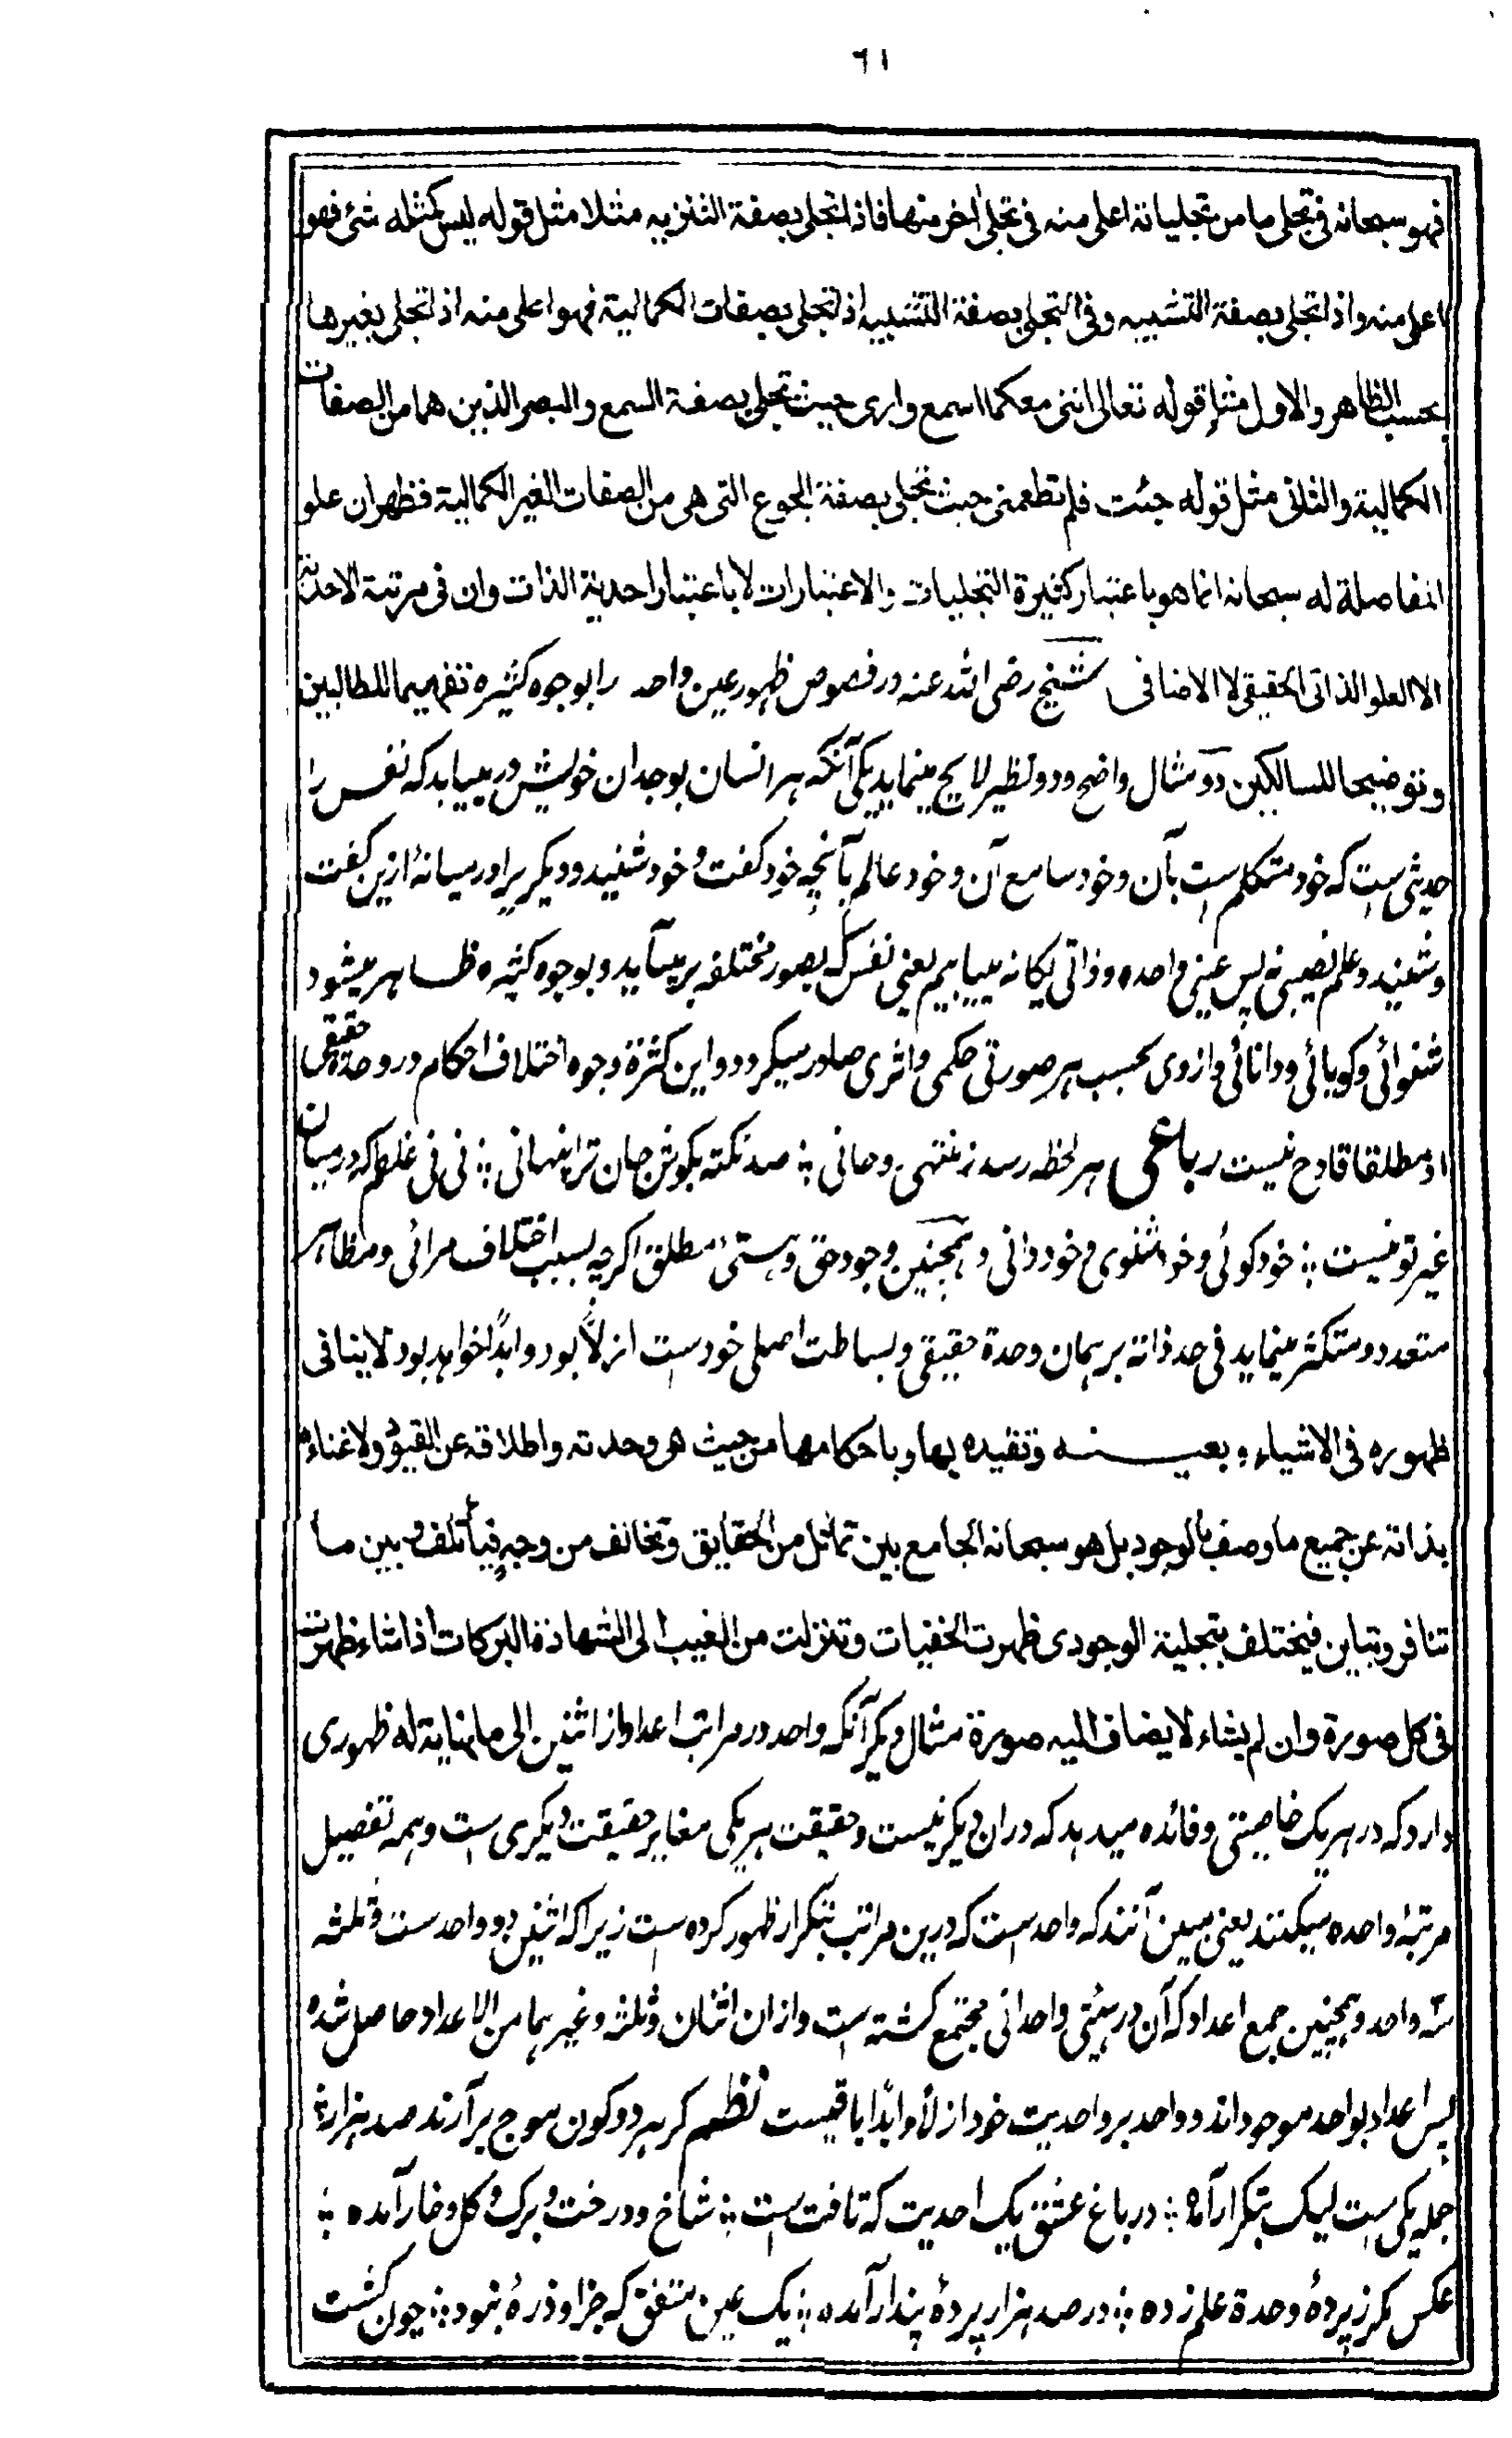 ٦١
فهو سبحانه فی تجلی ما من تجلیاته اعلی منه فی تجلی اخر منها فاذا تجلی بصفة التنزیه مثلا مثل قوله لیس کمثله شئ فهو
اعلی منه واذا تجلی بصفة التشبیه وفی التجلی بصفة التشبیه اذا تجلی بصفات الکمالیة فهو اعلی منه اذا تجلی بغیرها
بحسب الظاهر والاول مثل قوله تعالی اننی معکما اسمع واری حیث تجلی بصفة السمع والبصر الذین هما من الصفات
الکمالیة والثانی مثل قوله جئت فلم تطعمنی حیث تجلی بصفة الجوع التی هی من الصفات الغیر الکمالیة فظهر ان علو
المفاصلة له سبحانه انما هو باعتبار کثیرة التجلیات والاعتبارات لا باعتبار احدیة الذات وان فی مرتبة الاحدیة
الا العلو الذاتی الحقیقی لا الاضافی شیخ رضی الله عنه در فصوص ظهور عین واحد را بوجوه کثیره تفهیما للطالبین
وتوضیحا للسالکین دو مثال واضح ودو نظیر لایح مینماید یکی آنکه هر انسان بوجدان خویش در مییابد که نفس را
حدیثی است که خود متکلم است بآن وخود سامع آن وخود عالم بآنچه خود کفت وخود شنید ودیکریرا در میانهٔ ازین کفت
وشنید وعلم نصیبی نه پس عینی واحده وذاتی یکانه مییابیم یعنی نفس که بصور مختلفه بر میآید وبوجوه کثیره ظاهر میشود
شنوائی وکویائی ودانائی وازوی بحسب هر صورتی حکمی واثری صادر میکردد واین کثرة وجوه اختلاف احکام در وحدة حقیقی
او مطلقا قادح نیست رباعی هر لحظه رسد ز منتهی وحانی ؛ صد نکته بکوش جان ترا پنهانی ؛ نی نی غلطم که در میان
غیر تو نیست ؛ خود کوئی وخود شنوی وخود دانی وهمچنین وجود حق وهستی مطلق اکرچه بسبب اختلاف مرائی ومظاهر
متعدد ومتکثر مینماید فی حد ذاته بر همان وحدة حقیقی وبساطت اصلی خودست ازلاً بود وابداً خواهد بود لا ینافی
ظهوره فی الاشیاء وبعینه وتقیده بها وباحکامها من حیث هی وحدته واطلاقه عن القیود ولا غناءه
بذاته عن جمیع ما وصف بالوجود بل هو سبحانه الجامع بین تماثل من الحقایق وتخالف من وجه فیأتلف وبین ما
تنافر وتباین فیختلف بتجلیة الوجودی ظهرت الخفیات وتنزلت من الغیب الی الشهادة البرکات اذا شاء ظهرت
فی کل صورة وان لم یشاء لا یضاف الیه صورة مثال دیکر آنکه واحد در مراتب اعداد از اثنین الی ما لا نهایة له ظهوری
دارد که در هر یک خاصیتی وفائده میدهد که در ان دیکر نیست وحقیقت هر یکی مغایر حقیقت دیکری است وهمه تفصیل
مرتبهٔ واحده میکنند یعنی مبین آنند که واحد است که درین مراتب بتکرار ظهور کرده است زیرا که اثنین دو واحدست وثلثه
سه واحد وهمچنین جمع اعداد که آن در هیئتی واحدانی مجتمع کشته است وازان اثنان وثلثه وغیر هما من الاعداد حاصل شده
پس اعداد بواحد موجوداند وواحد بر واحدیت خود ازلاً وابداً باقیست نظم کر هر دو کون موج بر آرند صد هزار ؛
جمله یکی است لیک بتکرار آمده ؛ در باغ عشق یک احدیت که تافت است ؛ شاخ ودرخت وبرک وکل وخار آمده ؛
عکس کرز پردهٔ وحدة علم زده ؛ در صد هزار پردهٔ پندار آمده ؛ یک عین متفق که جزا وذرهٔ نبود ؛ چون کشت